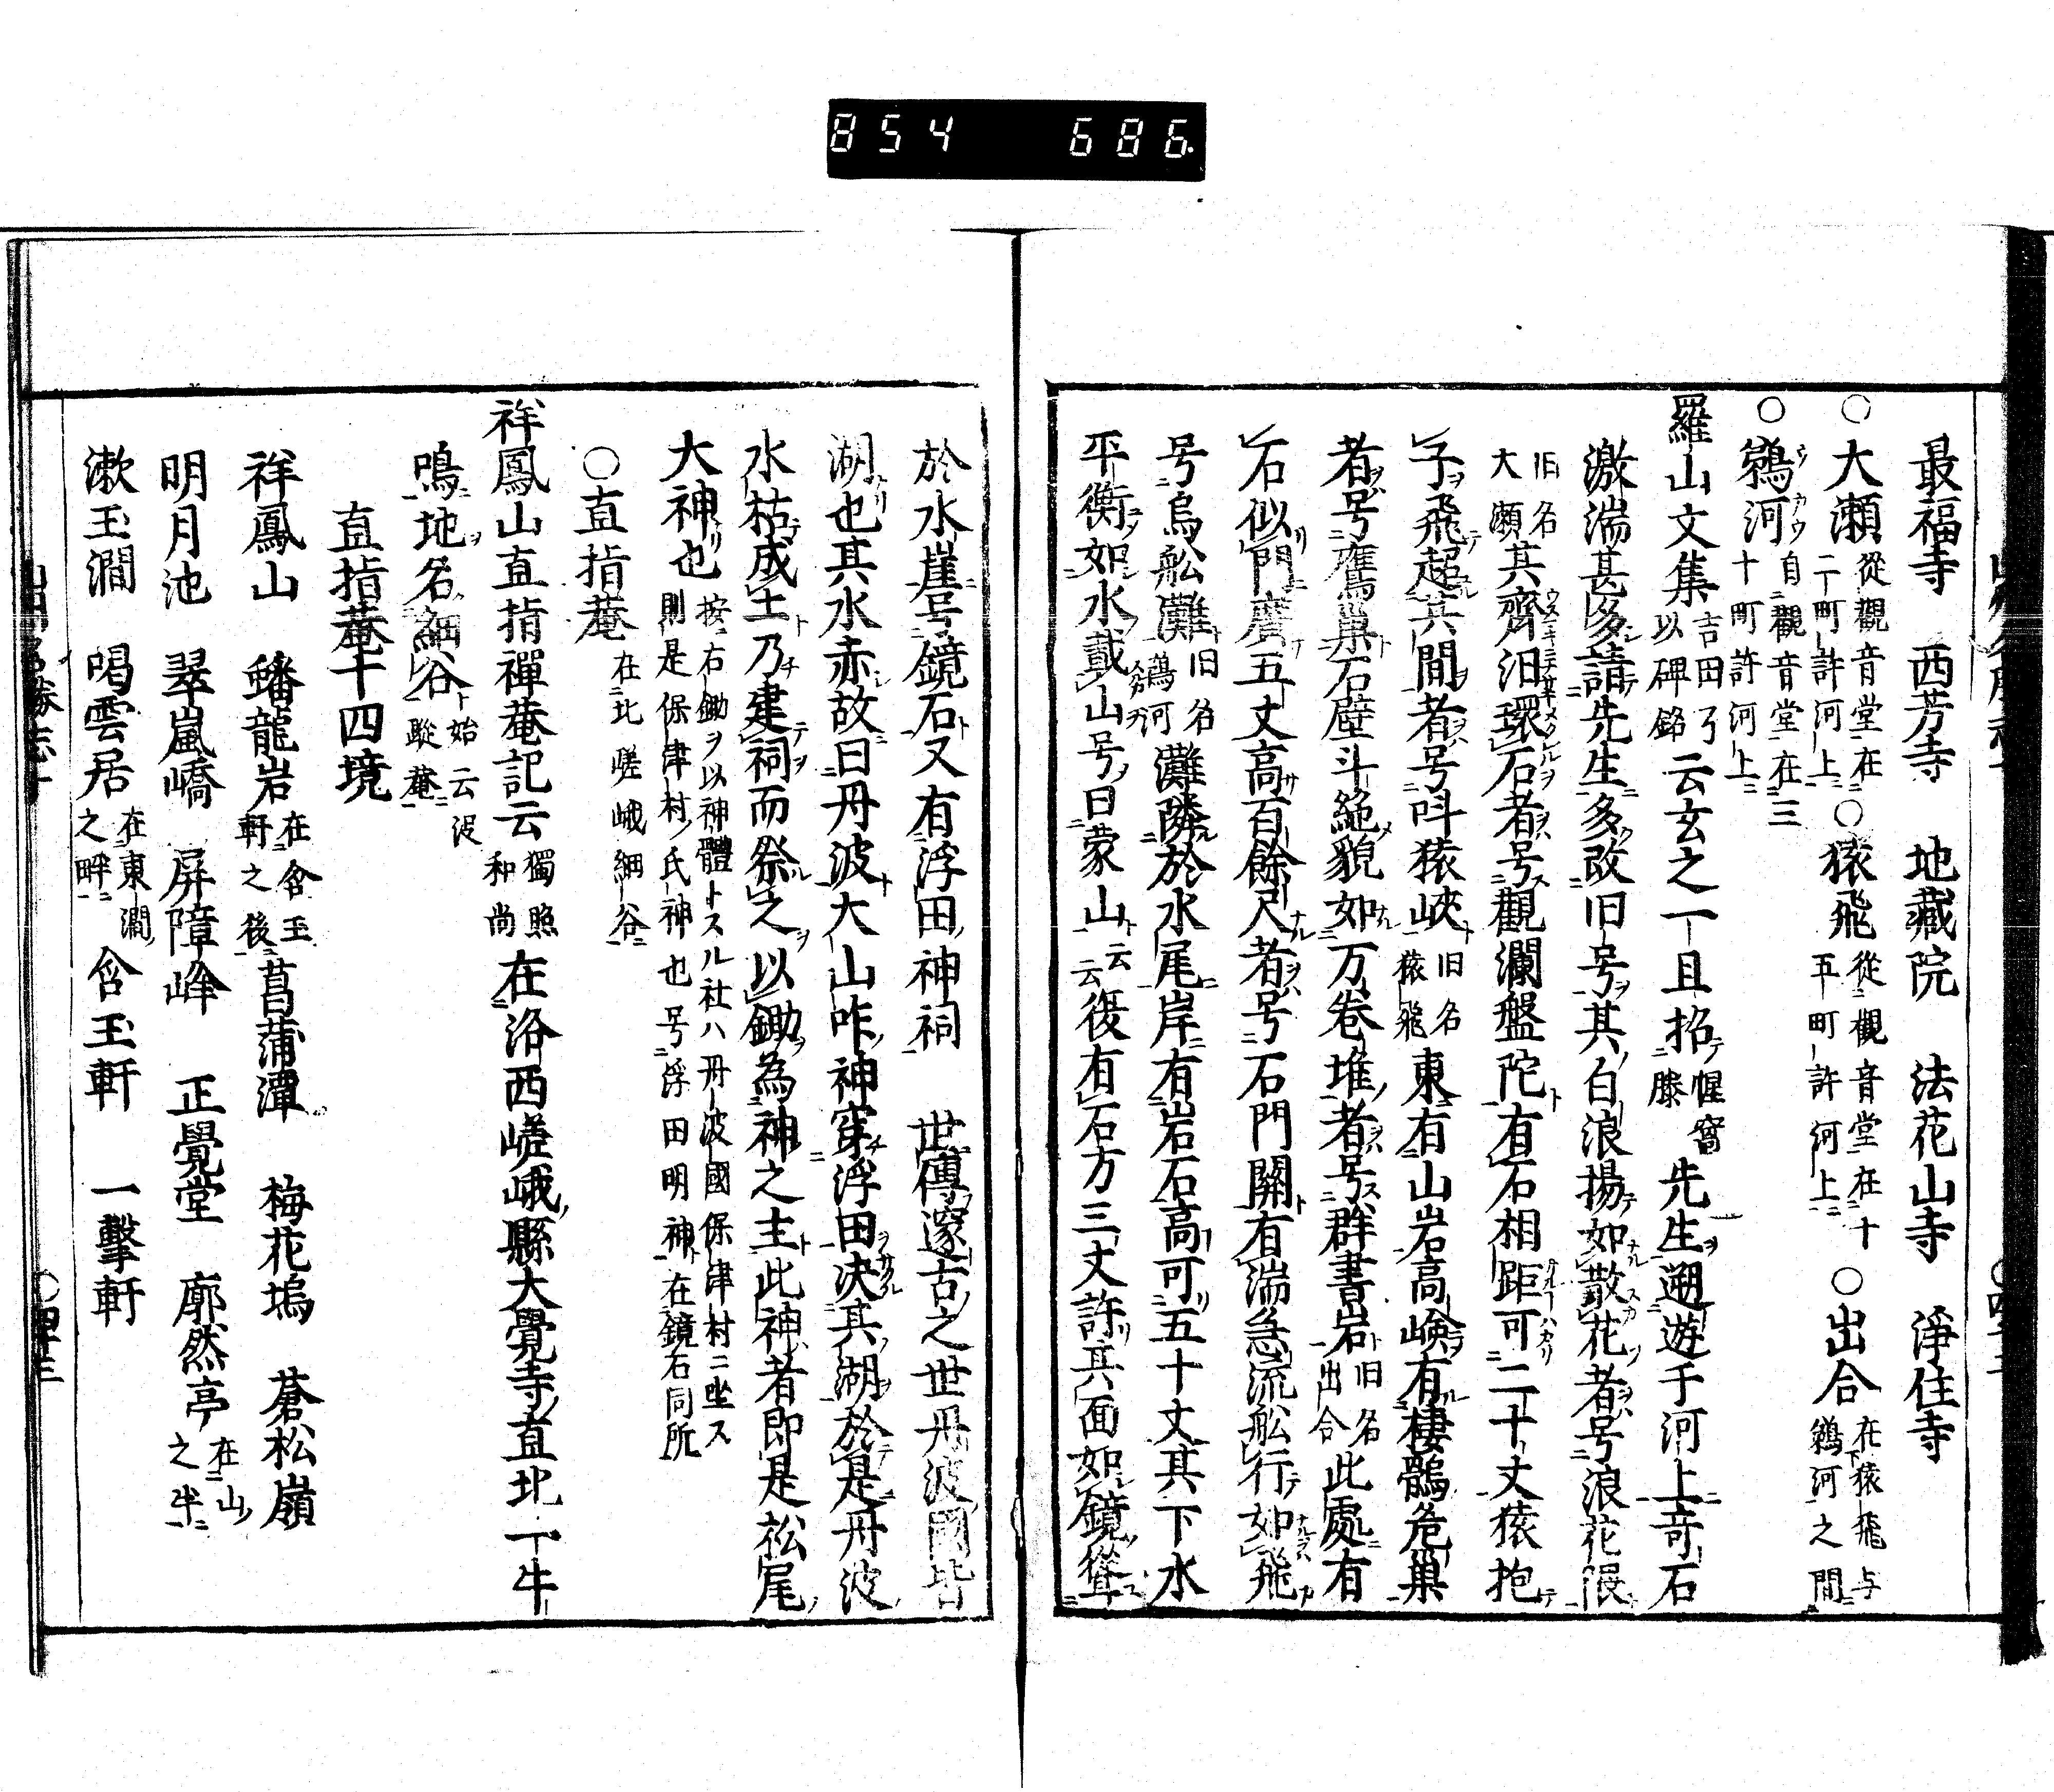 854 686.
最福寺 西芳寺 地藏院 法花山寺 淨住寺
○大瀬 從觀音堂在二丁町許河上 ○猿飛 從觀音堂在十五町許河上 ○出合 在猿飛与鵜河之間
○鵜河 自觀音堂在三十町許河上
羅山文集 吉田了以碑銘 云玄之一旦招 惺窩滕 先生遡遊于河上竒石
激湍甚多請先生多改旧号其白浪揚如散花者号浪花隈
旧名大瀬 其齊汨環石者号觀瀾盤陀有石相距可二十丈猿抱
子飛超其間者号叫猿峽 旧名猿飛 東有山岩高嶮有棲鶻危巢
者号鷹巢石壁斗絶貌如万卷堆者号群書岩 旧名出合 此處有
石似門廣五丈高百餘尺者号石門關有湍急流舩行如飛
号烏舩灘 旧名鵜河 灘隣於水尾岸有岩石高可五十丈其下水
平衡如水戴山号曰蒙山 云云 復有石方三丈許其面如鏡聳
於水崖号鏡石又有浮田神祠 世傳邃古之世丹波國皆
湖也其水赤故曰丹波大山咋神穿浮田决其湖於是丹波
水枯成土乃建祠而祭之以鋤為神之主此神者即是松尾
大神也 按右鋤ヲ以神體トスル社ハ丹波國保津村ニ坐ス則是保津村ノ氏神也号浮田明神在鏡石同所
○直指菴 在北嵯峨細谷
祥鳳山直指禪菴記云 獨照和尚 在洛西嵯峨縣大覺寺直北一牛
鳴地名細谷 始云没蹤菴
直指菴十四境
祥鳳山 蟠龍岩 在含玉軒之後 菖蒲潭 梅花塢 蒼松嶺
明月池 翠嵐嶠 屏障峰 正覺堂 廓然亭 在山之半
漱玉澗 喝雲居 在東澗之畔 含玉軒 一擊軒